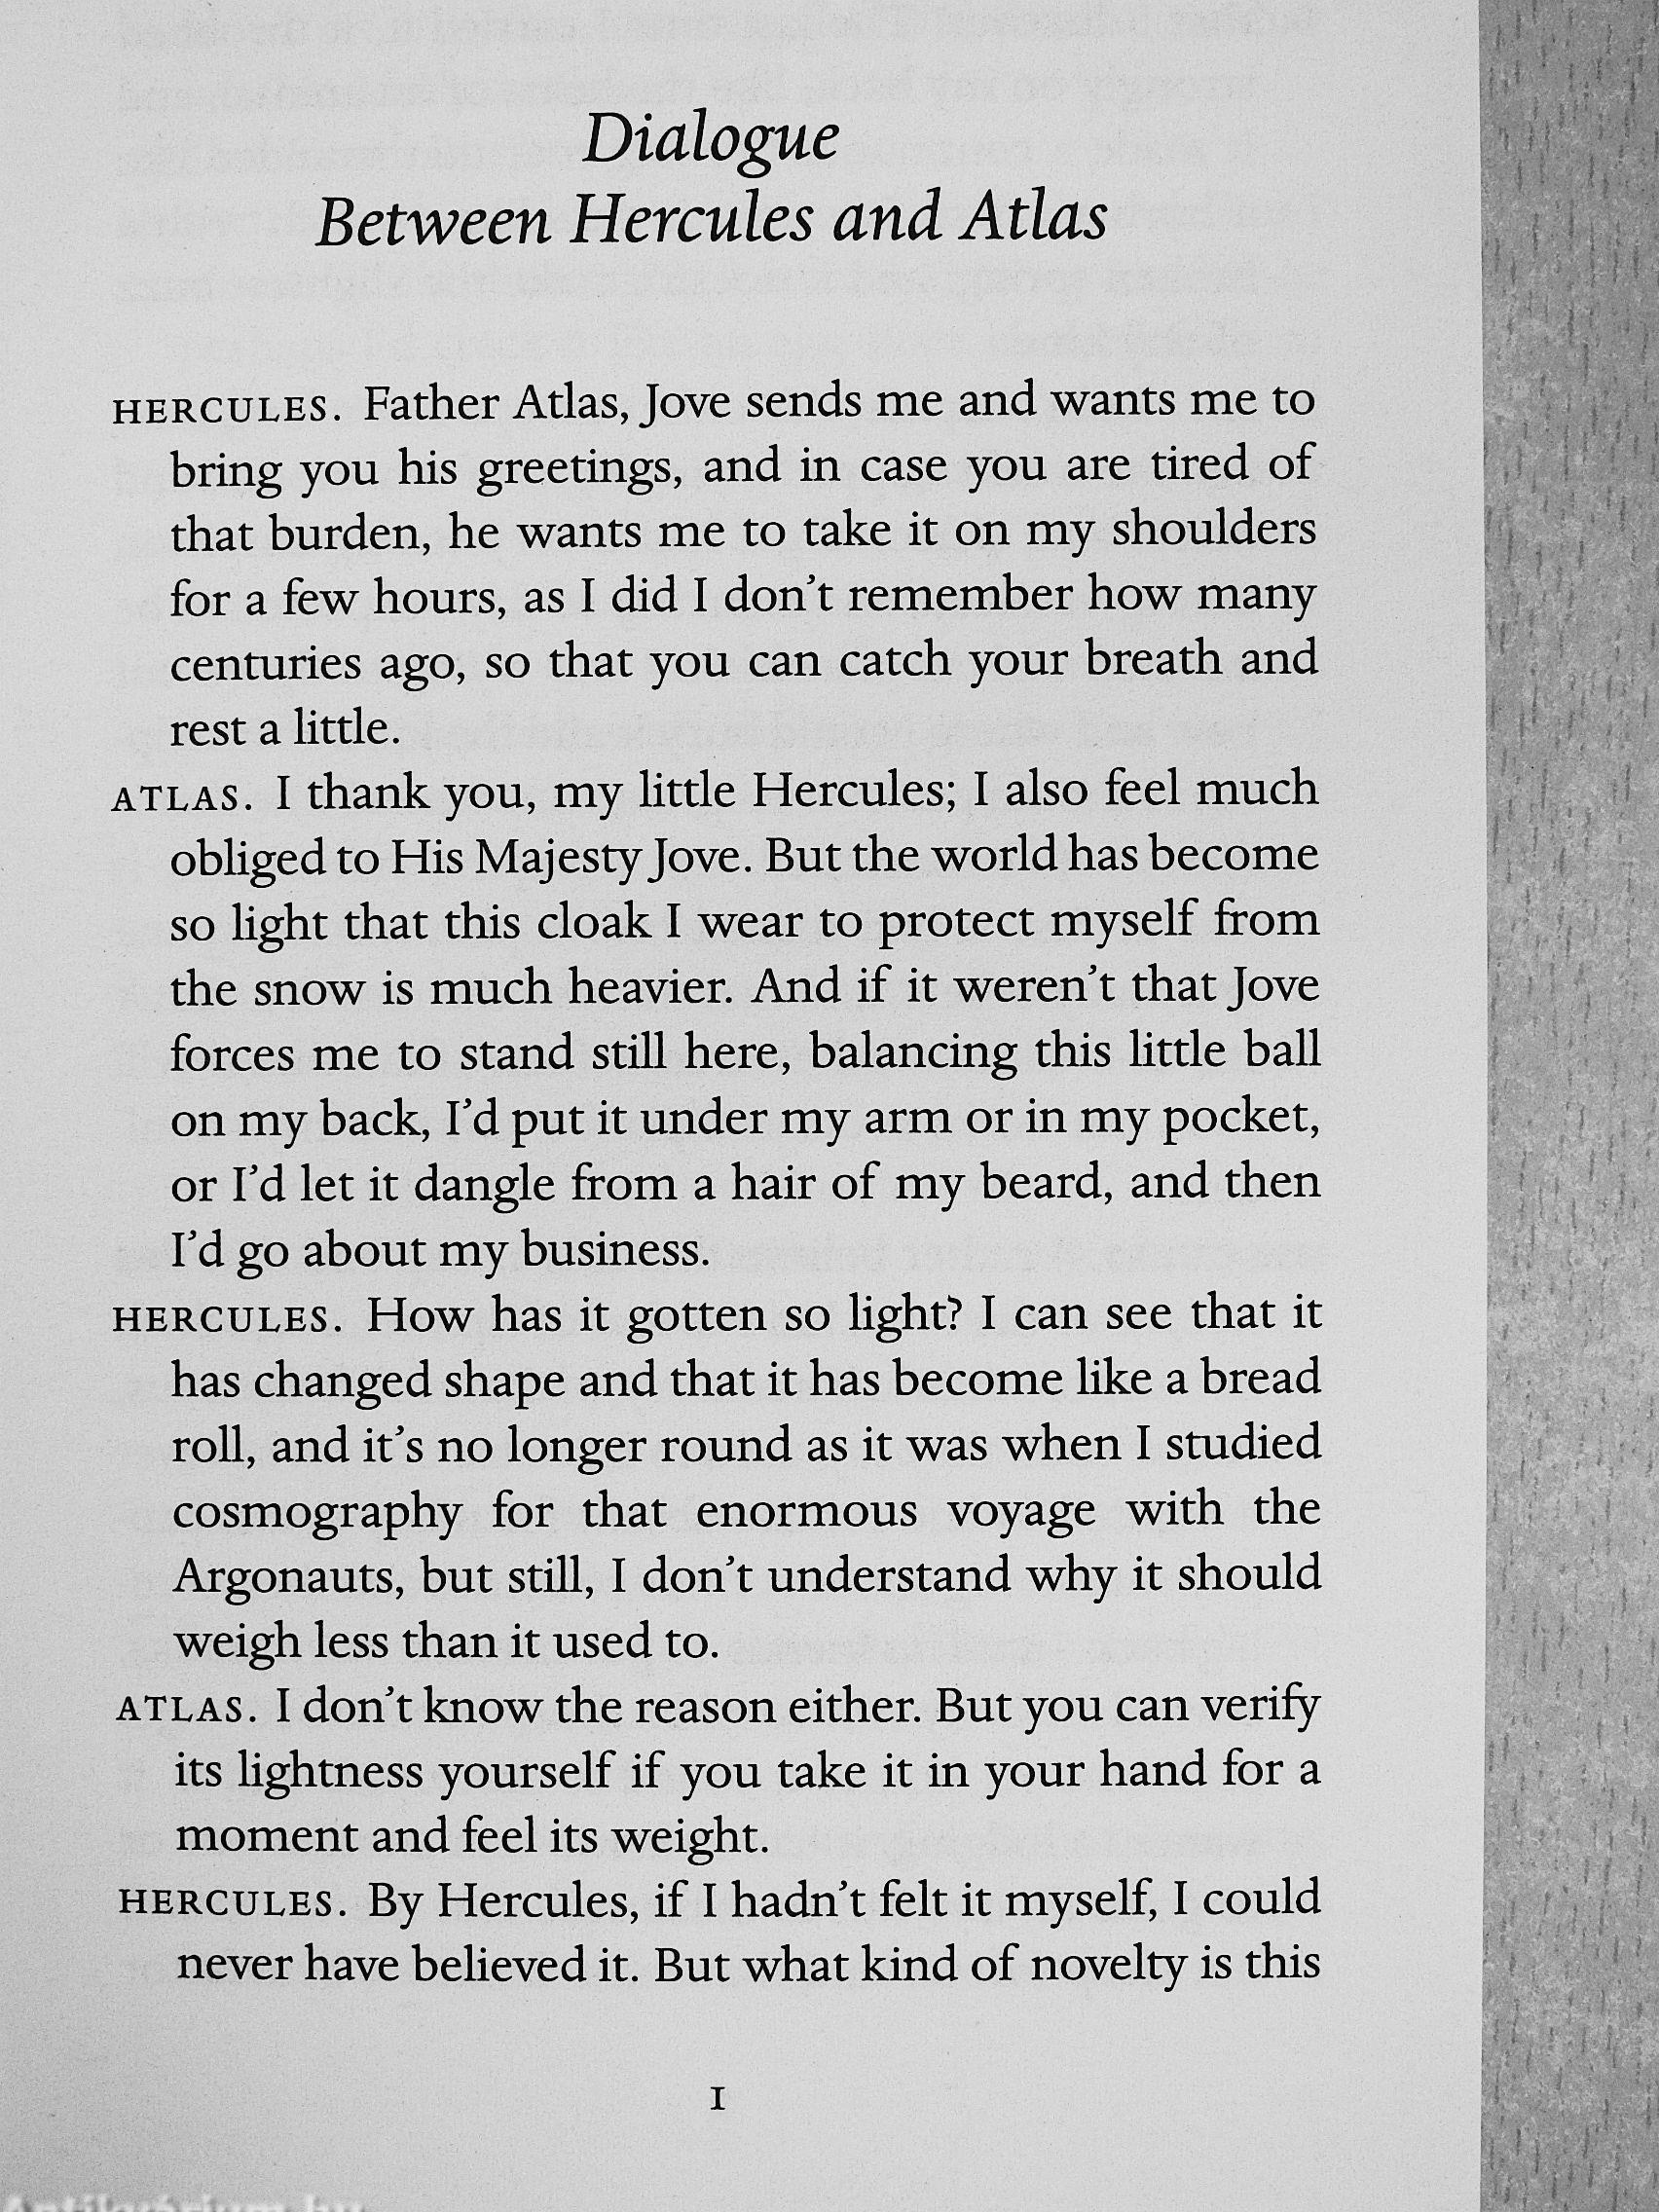 Dialogue
Between Hercules and Atlas
HERCULES. Father Atlas, Jove sends me and wants me to
bring you his greetings, and in case you are tired of
that burden, he wants me to take it on my shoulders
for a few hours, as I did I don't remember how many
centuries ago, so that you can catch your breath and
rest a little.
ATLAS. I thank you, my little Hercules; I also feel much
obliged to His Majesty Jove. But the world has become
so light that this cloak I wear to protect myself from
the snow is much heavier. And if it weren't that Jove
forces me to stand still here, balancing this little ball
on my back, I'd put it under my arm or in my pocket,
or I'd let it dangle from a hair of my beard, and then
I'd go about my business.
HERCULES. How has it gotten so light? I can see that it
has changed shape and that it has become like a bread
roll, and it's no longer round as it was when I studied
cosmography for that enormous voyage with the
Argonauts, but still, I don't understand why it should
weigh less than it used to.
ATLAS. I don't know the reason either. But you can verify
its lightness yourself if you take it in your hand for a
moment and feel its weight.
HERCULES. By Hercules, if I hadn't felt it myself, I could
never have believed it. But what kind of novelty is this
I